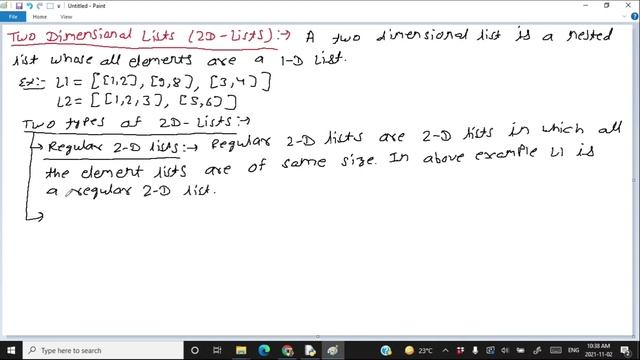 Untitled - Paint
File Home View
Two Dimensional Lists (2D-Lists):→ A two dimensional list is a nested
list whose all elements are a 1-D List.
Ex:- L1 = [[1,2], [9,8], [3,4]]
L2 = [[1,2,3], [5,6]]
Two types of 2D-Lists:→
→ Regular 2-D lists:→ Regular 2-D lists are 2-D lists in which all
the element lists are of same size. In above example L1 is
a regular 2-D list.
23°C ENG 10:38 AM
2021-11-02